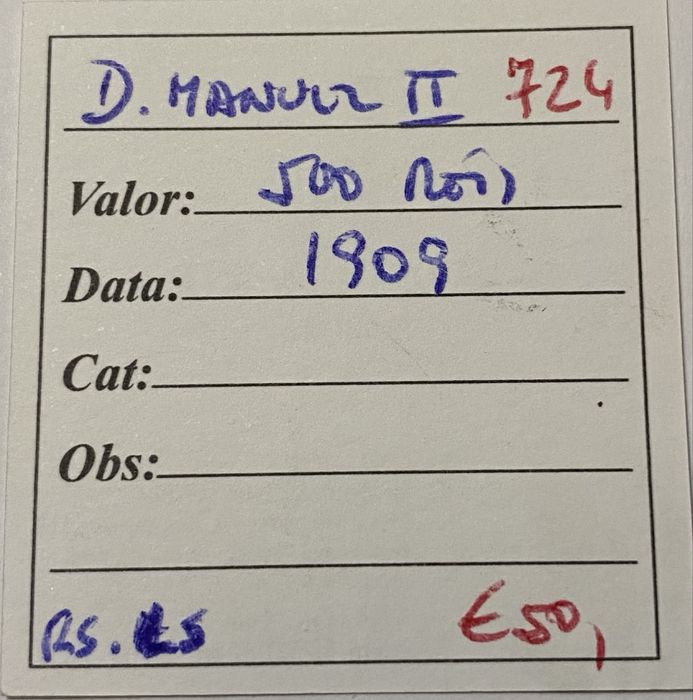 D. MANUEL II 724
Valor: 500 Réis
Data: 1909
Cat:
Obs:
€50,